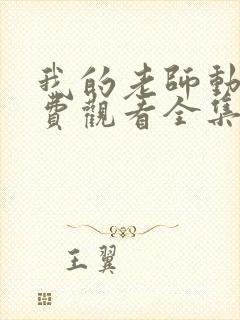 我的老師動
費觀看全集
王翼